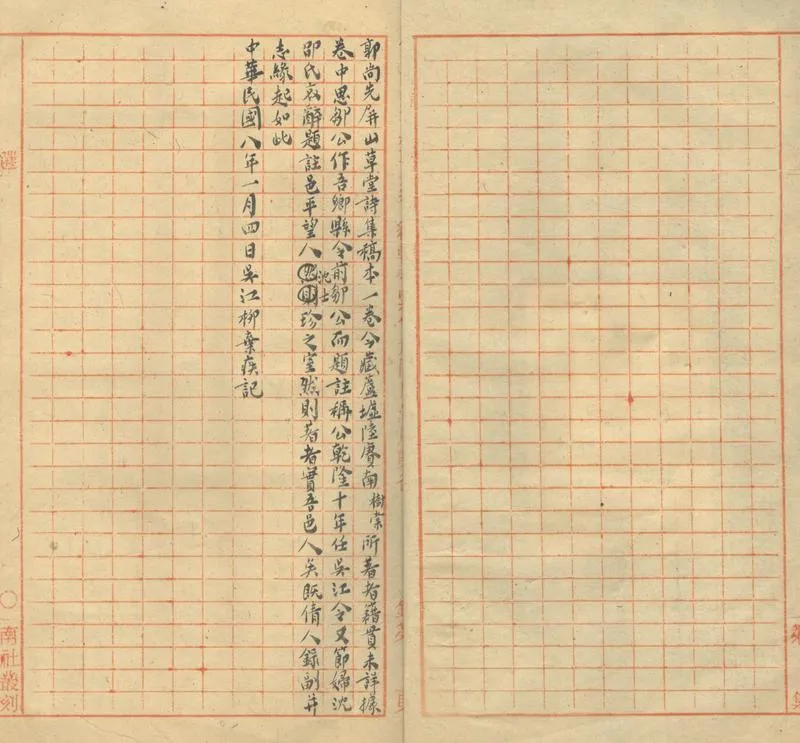 郭尚先屏山草堂詩集稿本一卷今藏蘆墟陸賡南樹棠所著者籍貫未詳據
卷中思鄒公作吾鄉縣令前鄒公而題註稱公乾隆十年任吳江令又節婦沈
邵氏哀辭題註邑平望人沈士珍之室然則著者實吾邑人矣既倩人錄副并
志緣起如此
中華民國八年一月四日吳江柳棄疾記
南社叢刻